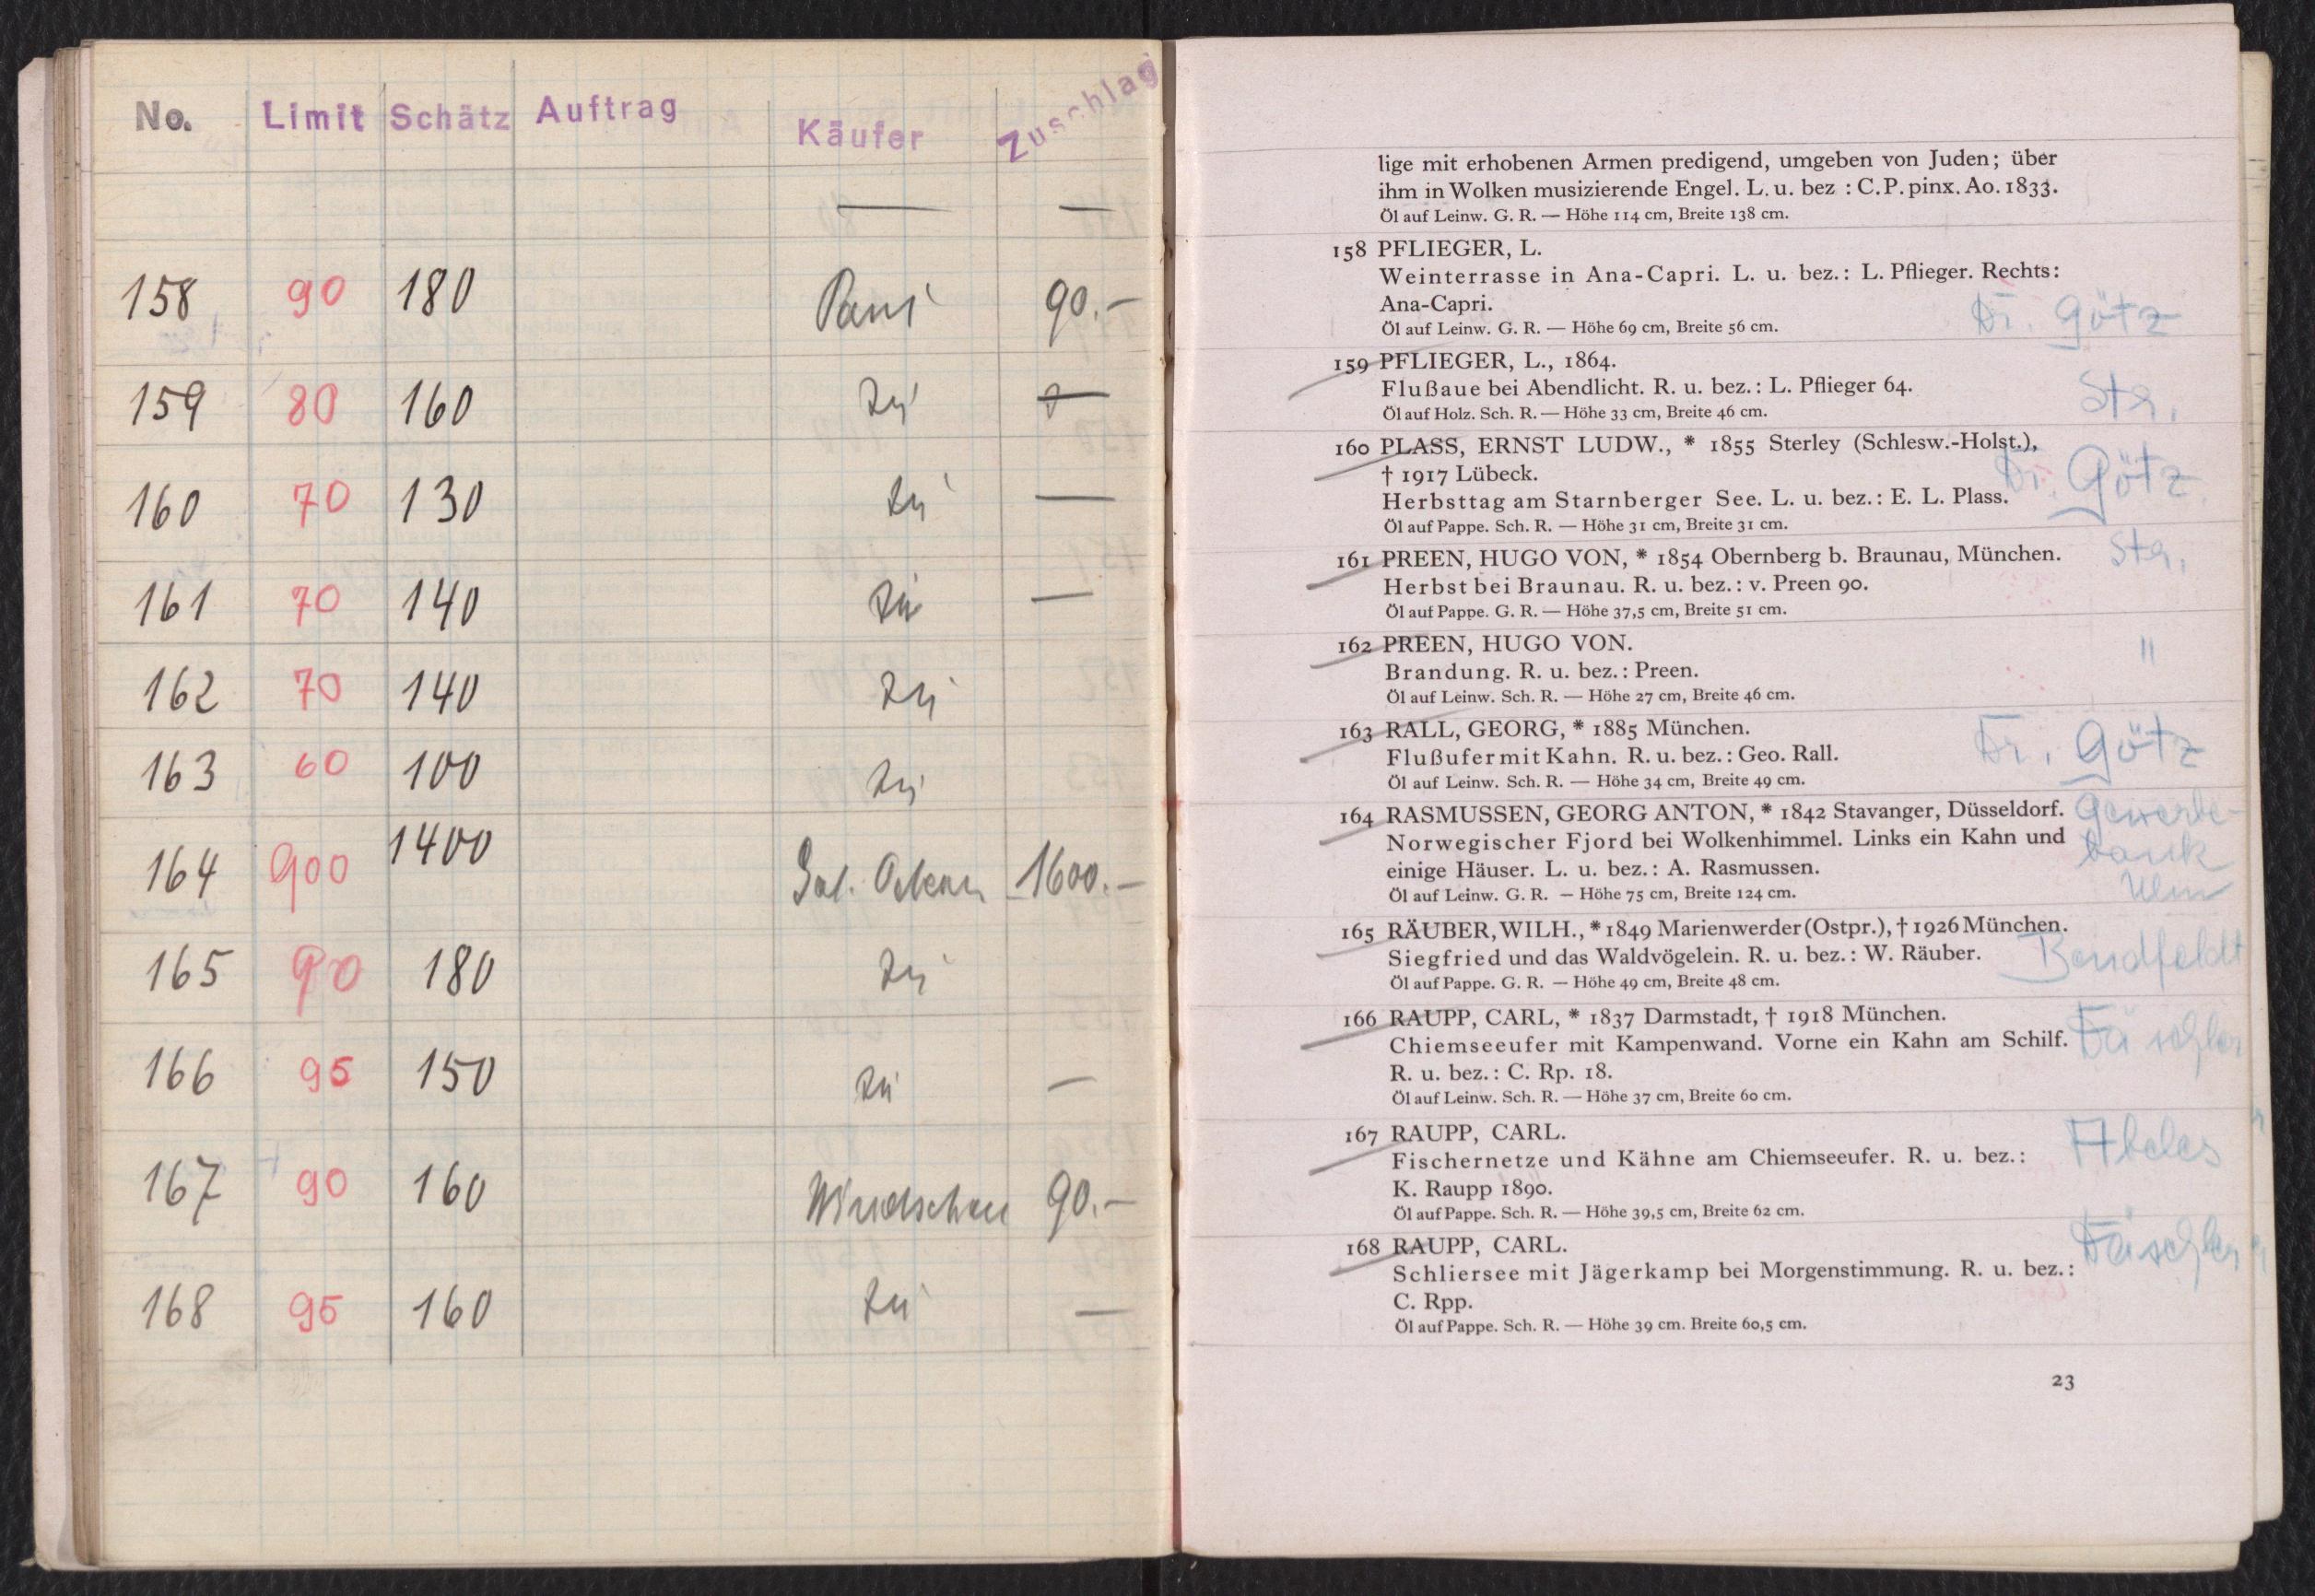 No. Limit Schätz Auftrag Käufer Zuschlag
— —
158 90 180 90.–
159 80 160 zu —
160 70 130 zu —
161 70 140 zu —
162 70 140 zu
163 60 100 zu
164 900 1400 Gal. 1600.–
165 90 180 zu
166 95 150 zu —
167 90 160 90.–
168 95 160 zu —
lige mit erhobenen Armen predigend, umgeben von Juden; über
ihm in Wolken musizierende Engel. L. u. bez : C. P. pinx. Ao. 1833.
Öl auf Leinw. G. R. — Höhe 114 cm, Breite 138 cm.
158 PFLIEGER, L.
Weinterrasse in Ana-Capri. L. u. bez.: L. Pflieger. Rechts:
Ana-Capri. Dr. Götz
Öl auf Leinw. G. R. — Höhe 69 cm, Breite 56 cm.
159 PFLIEGER, L., 1864.
Flußaue bei Abendlicht. R. u. bez.: L. Pflieger 64. Str.
Öl auf Holz. Sch. R. — Höhe 33 cm, Breite 46 cm.
160 PLASS, ERNST LUDW., * 1855 Sterley (Schlesw.-Holst.),
† 1917 Lübeck. Dr. Götz
Herbsttag am Starnberger See. L. u. bez.: E. L. Plass.
Öl auf Pappe. Sch. R. — Höhe 31 cm, Breite 31 cm.
161 PREEN, HUGO VON, * 1854 Obernberg b. Braunau, München. Str.
Herbst bei Braunau. R. u. bez.: v. Preen 90.
Öl auf Pappe. G. R. — Höhe 37,5 cm, Breite 51 cm.
162 PREEN, HUGO VON. "
Brandung. R. u. bez.: Preen.
Öl auf Leinw. Sch. R. — Höhe 27 cm, Breite 46 cm.
163 RALL, GEORG, * 1885 München. Dr. Götz
Flußufer mit Kahn. R. u. bez.: Geo. Rall.
Öl auf Leinw. Sch. R. — Höhe 34 cm, Breite 49 cm.
164 RASMUSSEN, GEORG ANTON, * 1842 Stavanger, Düsseldorf. Gewerbe-
Norwegischer Fjord bei Wolkenhimmel. Links ein Kahn und bank
einige Häuser. L. u. bez.: A. Rasmussen. Ulm
Öl auf Leinw. G. R. — Höhe 75 cm, Breite 124 cm.
165 RÄUBER, WILH., * 1849 Marienwerder (Ostpr.), † 1926 München.
Siegfried und das Waldvögelein. R. u. bez.: W. Räuber. Bendfeldt
Öl auf Pappe. G. R. — Höhe 49 cm, Breite 48 cm.
166 RAUPP, CARL, * 1837 Darmstadt, † 1918 München.
Chiemseeufer mit Kampenwand. Vorne ein Kahn am Schilf.
R. u. bez.: C. Rp. 18.
Öl auf Leinw. Sch. R. — Höhe 37 cm, Breite 60 cm.
167 RAUPP, CARL. Abeles
Fischernetze und Kähne am Chiemseeufer. R. u. bez.:
K. Raupp 1890.
Öl auf Pappe. Sch. R. — Höhe 39,5 cm, Breite 62 cm.
168 RAUPP, CARL.
Schliersee mit Jägerkamp bei Morgenstimmung. R. u. bez.:
C. Rpp.
Öl auf Pappe. Sch. R. — Höhe 39 cm. Breite 60,5 cm.
23